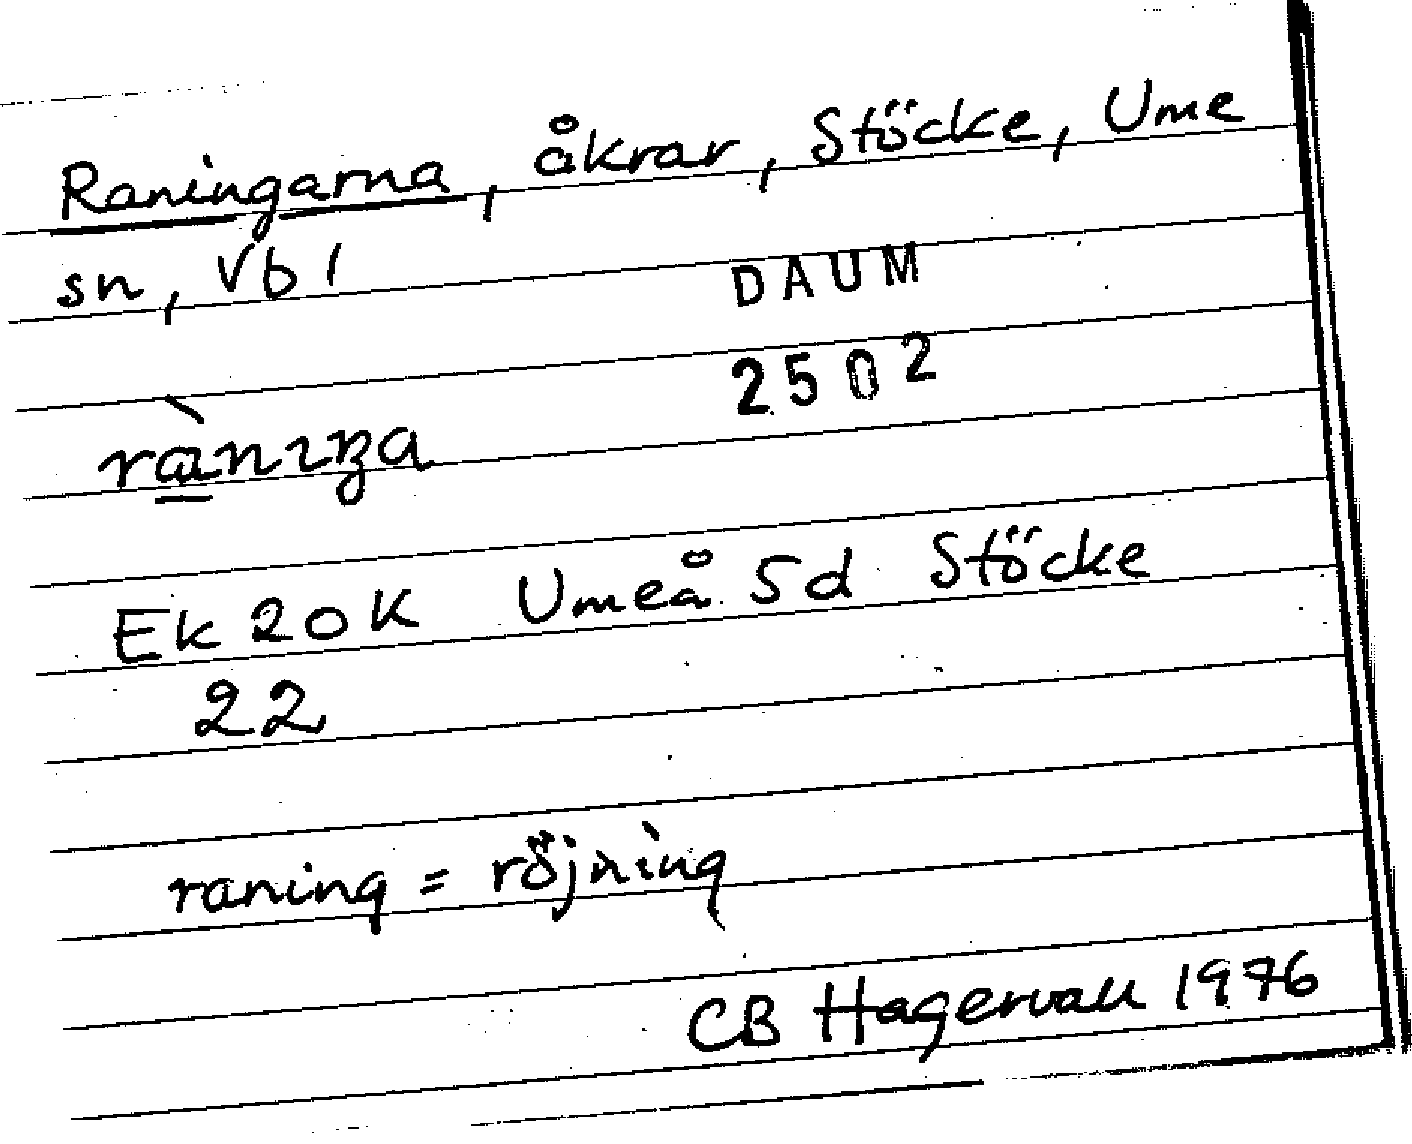 Raningarna, åkrar, Stöcke, Ume
sn, Vb l
DAUM
2502
Ek 20K Umeå 5d Stöcke
22
raning = röjning
CB Hagervall 1976